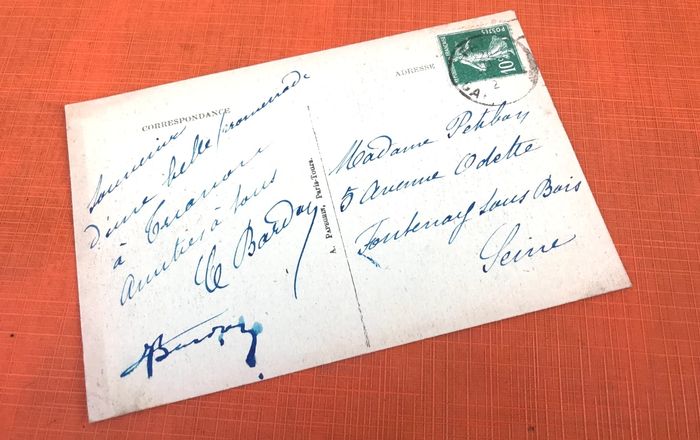 CORRESPONDANCE
Souvenir
d'une belle promenade
à Trianon
Amitiés à tous
Bardou
A. Papeghin, Paris-Tours.
ADRESSE
POSTES
10c
Madame Petitbon
5 Avenue Odette
Fontenay sous Bois
Seine